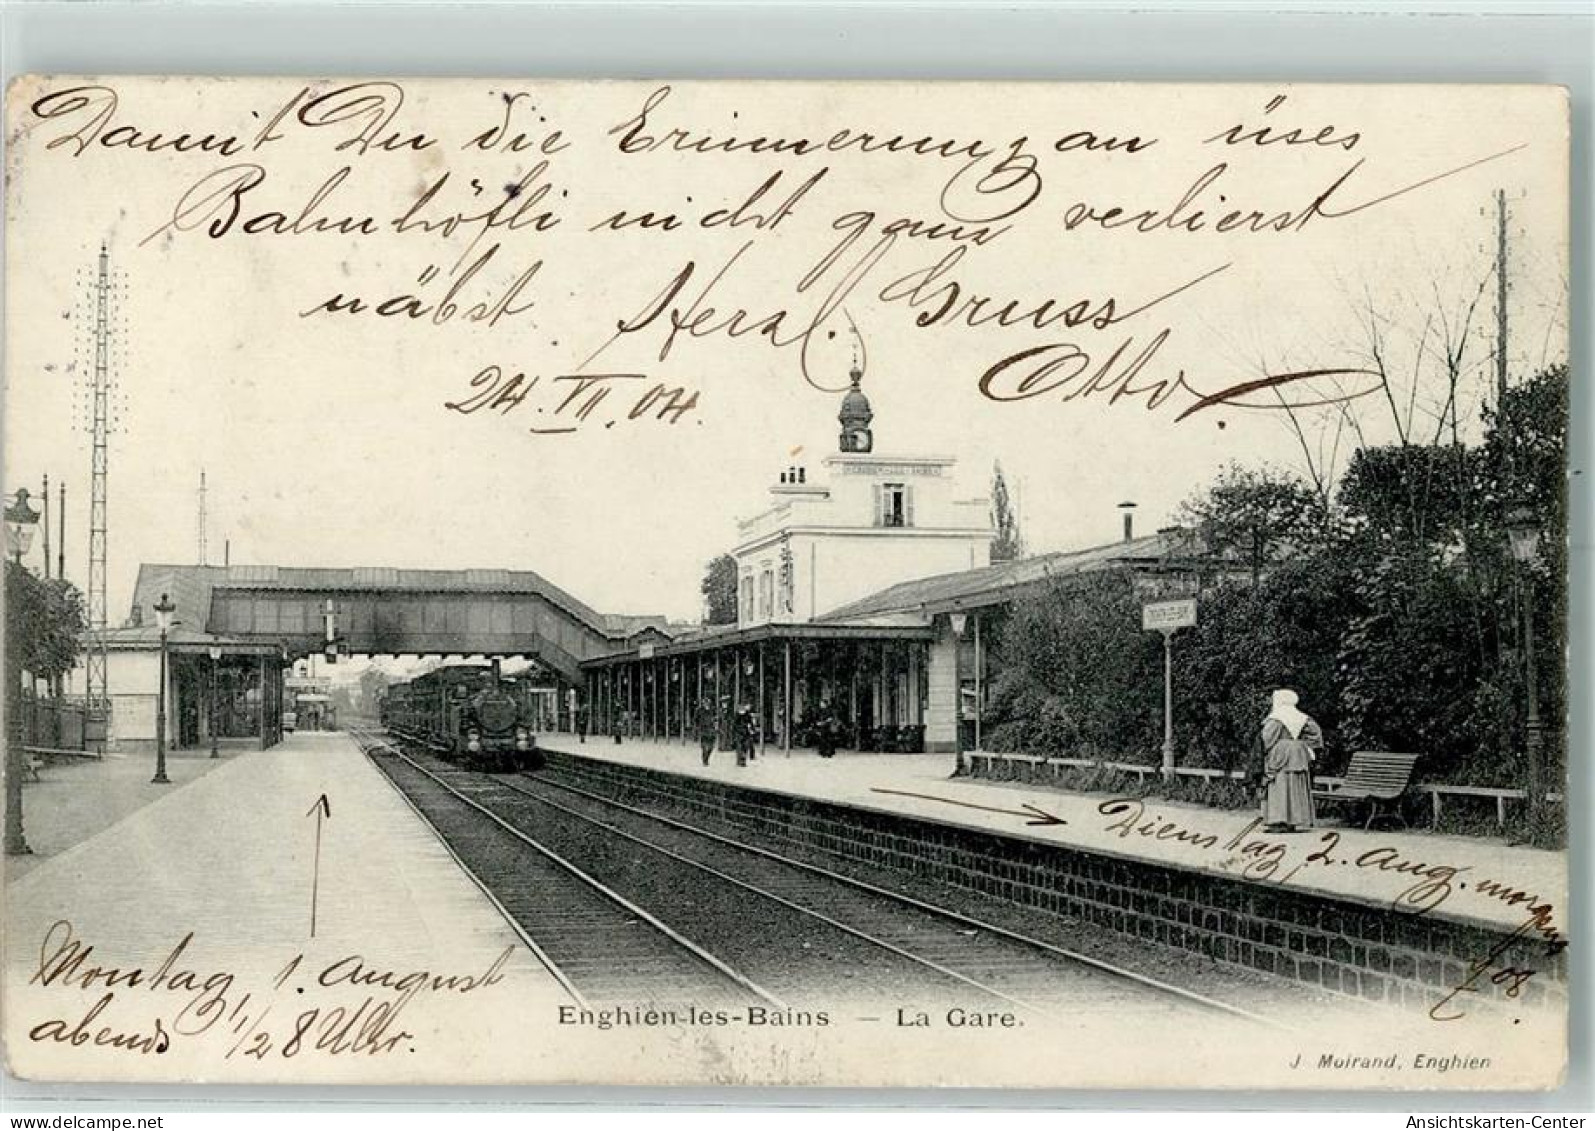 Damit Du die Erinnerung an üses
Bahnhöfli nicht ganz verlierst
näbst Herzl. Gruss
24.VII.04. Otto
ENGHIEN-LES-BAINS
Dienstag 2. Aug. morgens
7.08.
Montag 1. August
abends 1/2 8 Uhr.
Enghien-les-Bains — La Gare.
J Moirand, Enghien
delcampe.net
Ansichtskarten-Center